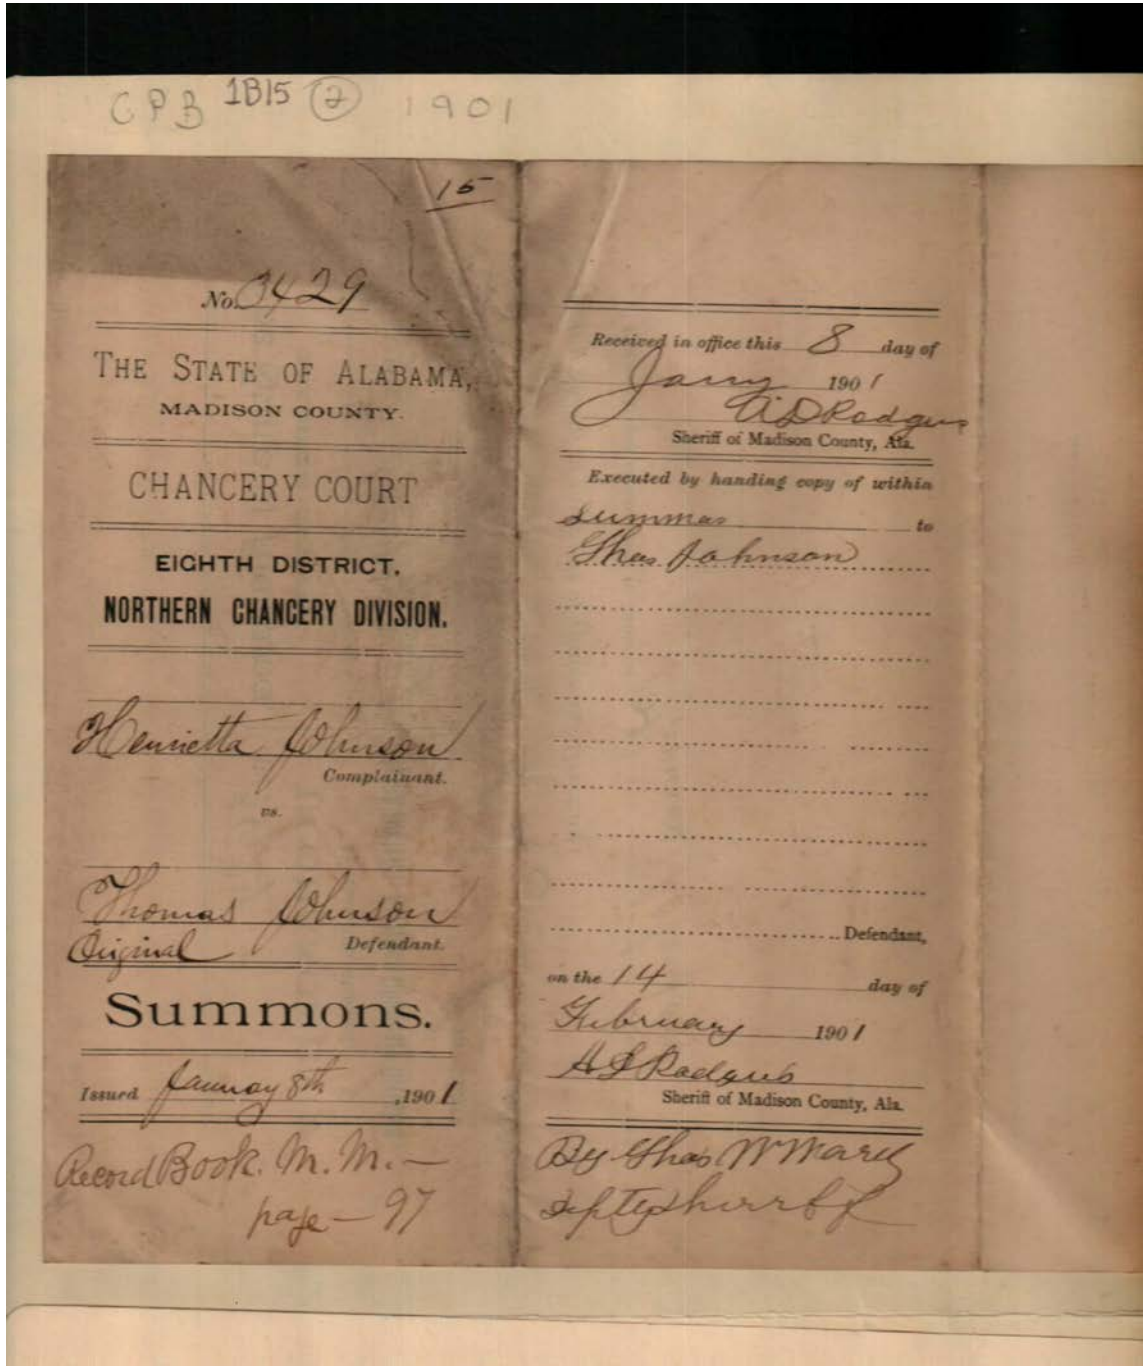 CPB 1B15 2 1901
15
No. 3429
THE STATE OF ALABAMA,
MADISON COUNTY.
CHANCERY COURT
EIGHTH DISTRICT,
NORTHERN CHANCERY DIVISION.
Henrietta Johnson
Complainant.
vs.
Thomas Johnson
Original Defendant.
Summons.
Issued January 8th, 1901
Record Book. M. M. —
page — 97
Received in office this 8 day of
Jany 1901
A D Rodgers
Sheriff of Madison County, Ala.
Executed by handing copy of within
summas to
Thos Johnson
Defendant,
on the 14 day of
February 1901
A D Rodgers
Sheriff of Madison County, Ala.
By Thos W